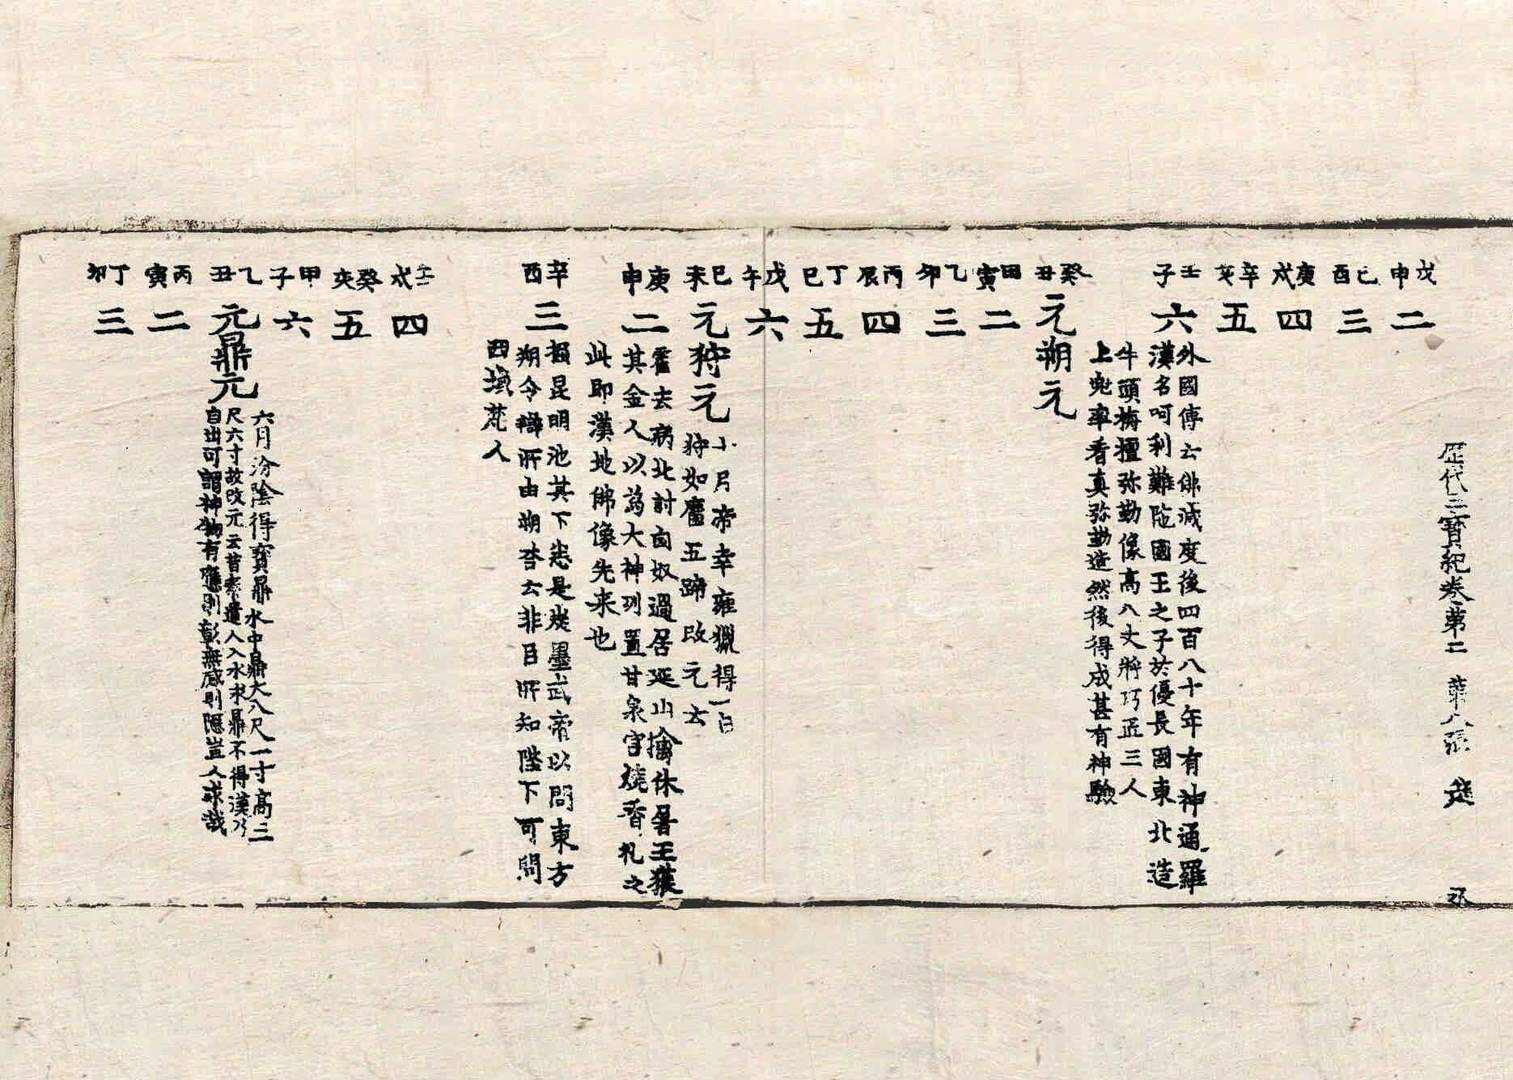 歷代三寶紀卷第二 第八張
戊申二
己酉三
庚戌四
辛亥五
壬子六
外國傳云佛滅度後四百八十年有神通羅
漢名呵利難陁國王之子於優長國東北造
牛頭栴檀弥勤像高八丈將巧匠三人
上兜率看真弥勤造然後得成甚有神驗
癸丑元朔元
甲寅二
乙卯三
丙辰四
丁巳五
戊午六
己未元狩元
十月帝幸雍獵得一白
狩如麃五蹄改元去
庚申二
霍去病北討匈奴過居延山擒休屠王獲
其金人以為大神列置甘泉宮燒香礼之
此即漢地佛像先来也
辛酉三
損昆明池其下悉是炭墨武帝以問東方
朔令辯所由朔荅云非臣所知陛下可問
西域梵人
壬戌四
癸亥五
甲子六
乙丑元鼎元
六月汾陰得寶鼎水中鼎大八尺一寸高三
尺六寸故改元云昔秦遣人入水求鼎不得漢乃
自出可謂神物有應則彰無感則隱豈人求哉
丙寅二
丁卯三